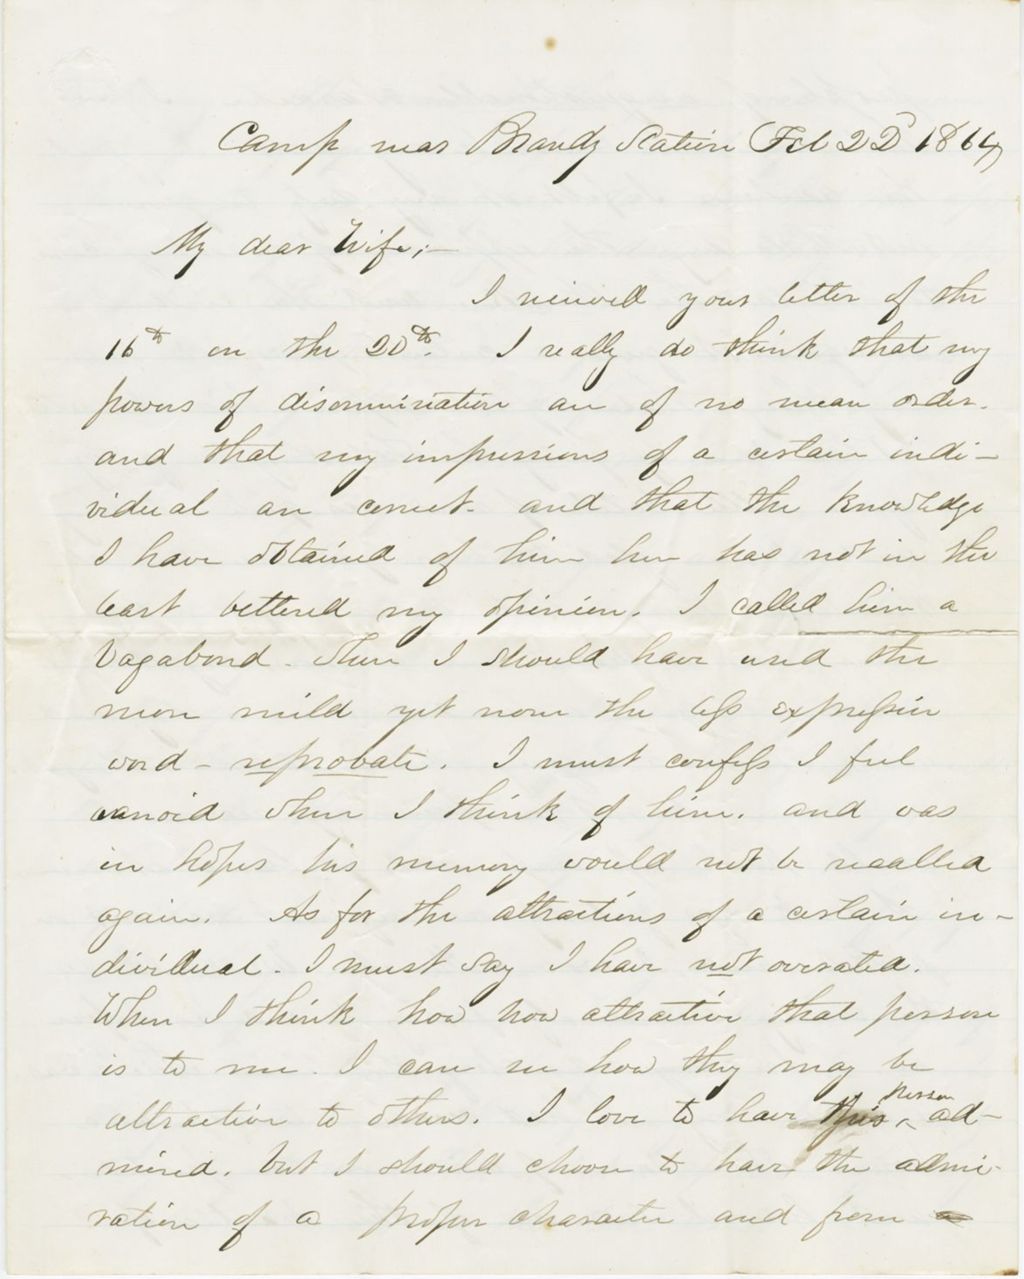 Camp near Brandy Station Feb 22D 1864
My dear Wife;—
I received your letter of the
16th on the 20th. I really do think that my
powers of discrimination are of no mean order.
and that my impressions of a certain indi–
vidual are correct. and that the knowledge
I have obtained of him here has not in the
least bettered my opinion. I called him a
Vagabond – when I should have used the
more mild yet none the less expressive
word – reprobate. I must confess I feel
when I think of him. and was
in hopes his memory would not be recalled
again. As for the attractions of a certain in–
dividual – I must say I have not overated.
When I think how how attractive that person
is to me. I can see how they may be
attractive to others. I love to have this ^ person ad–
mired. but I should choose to have the admi–
ration of a proper character and from